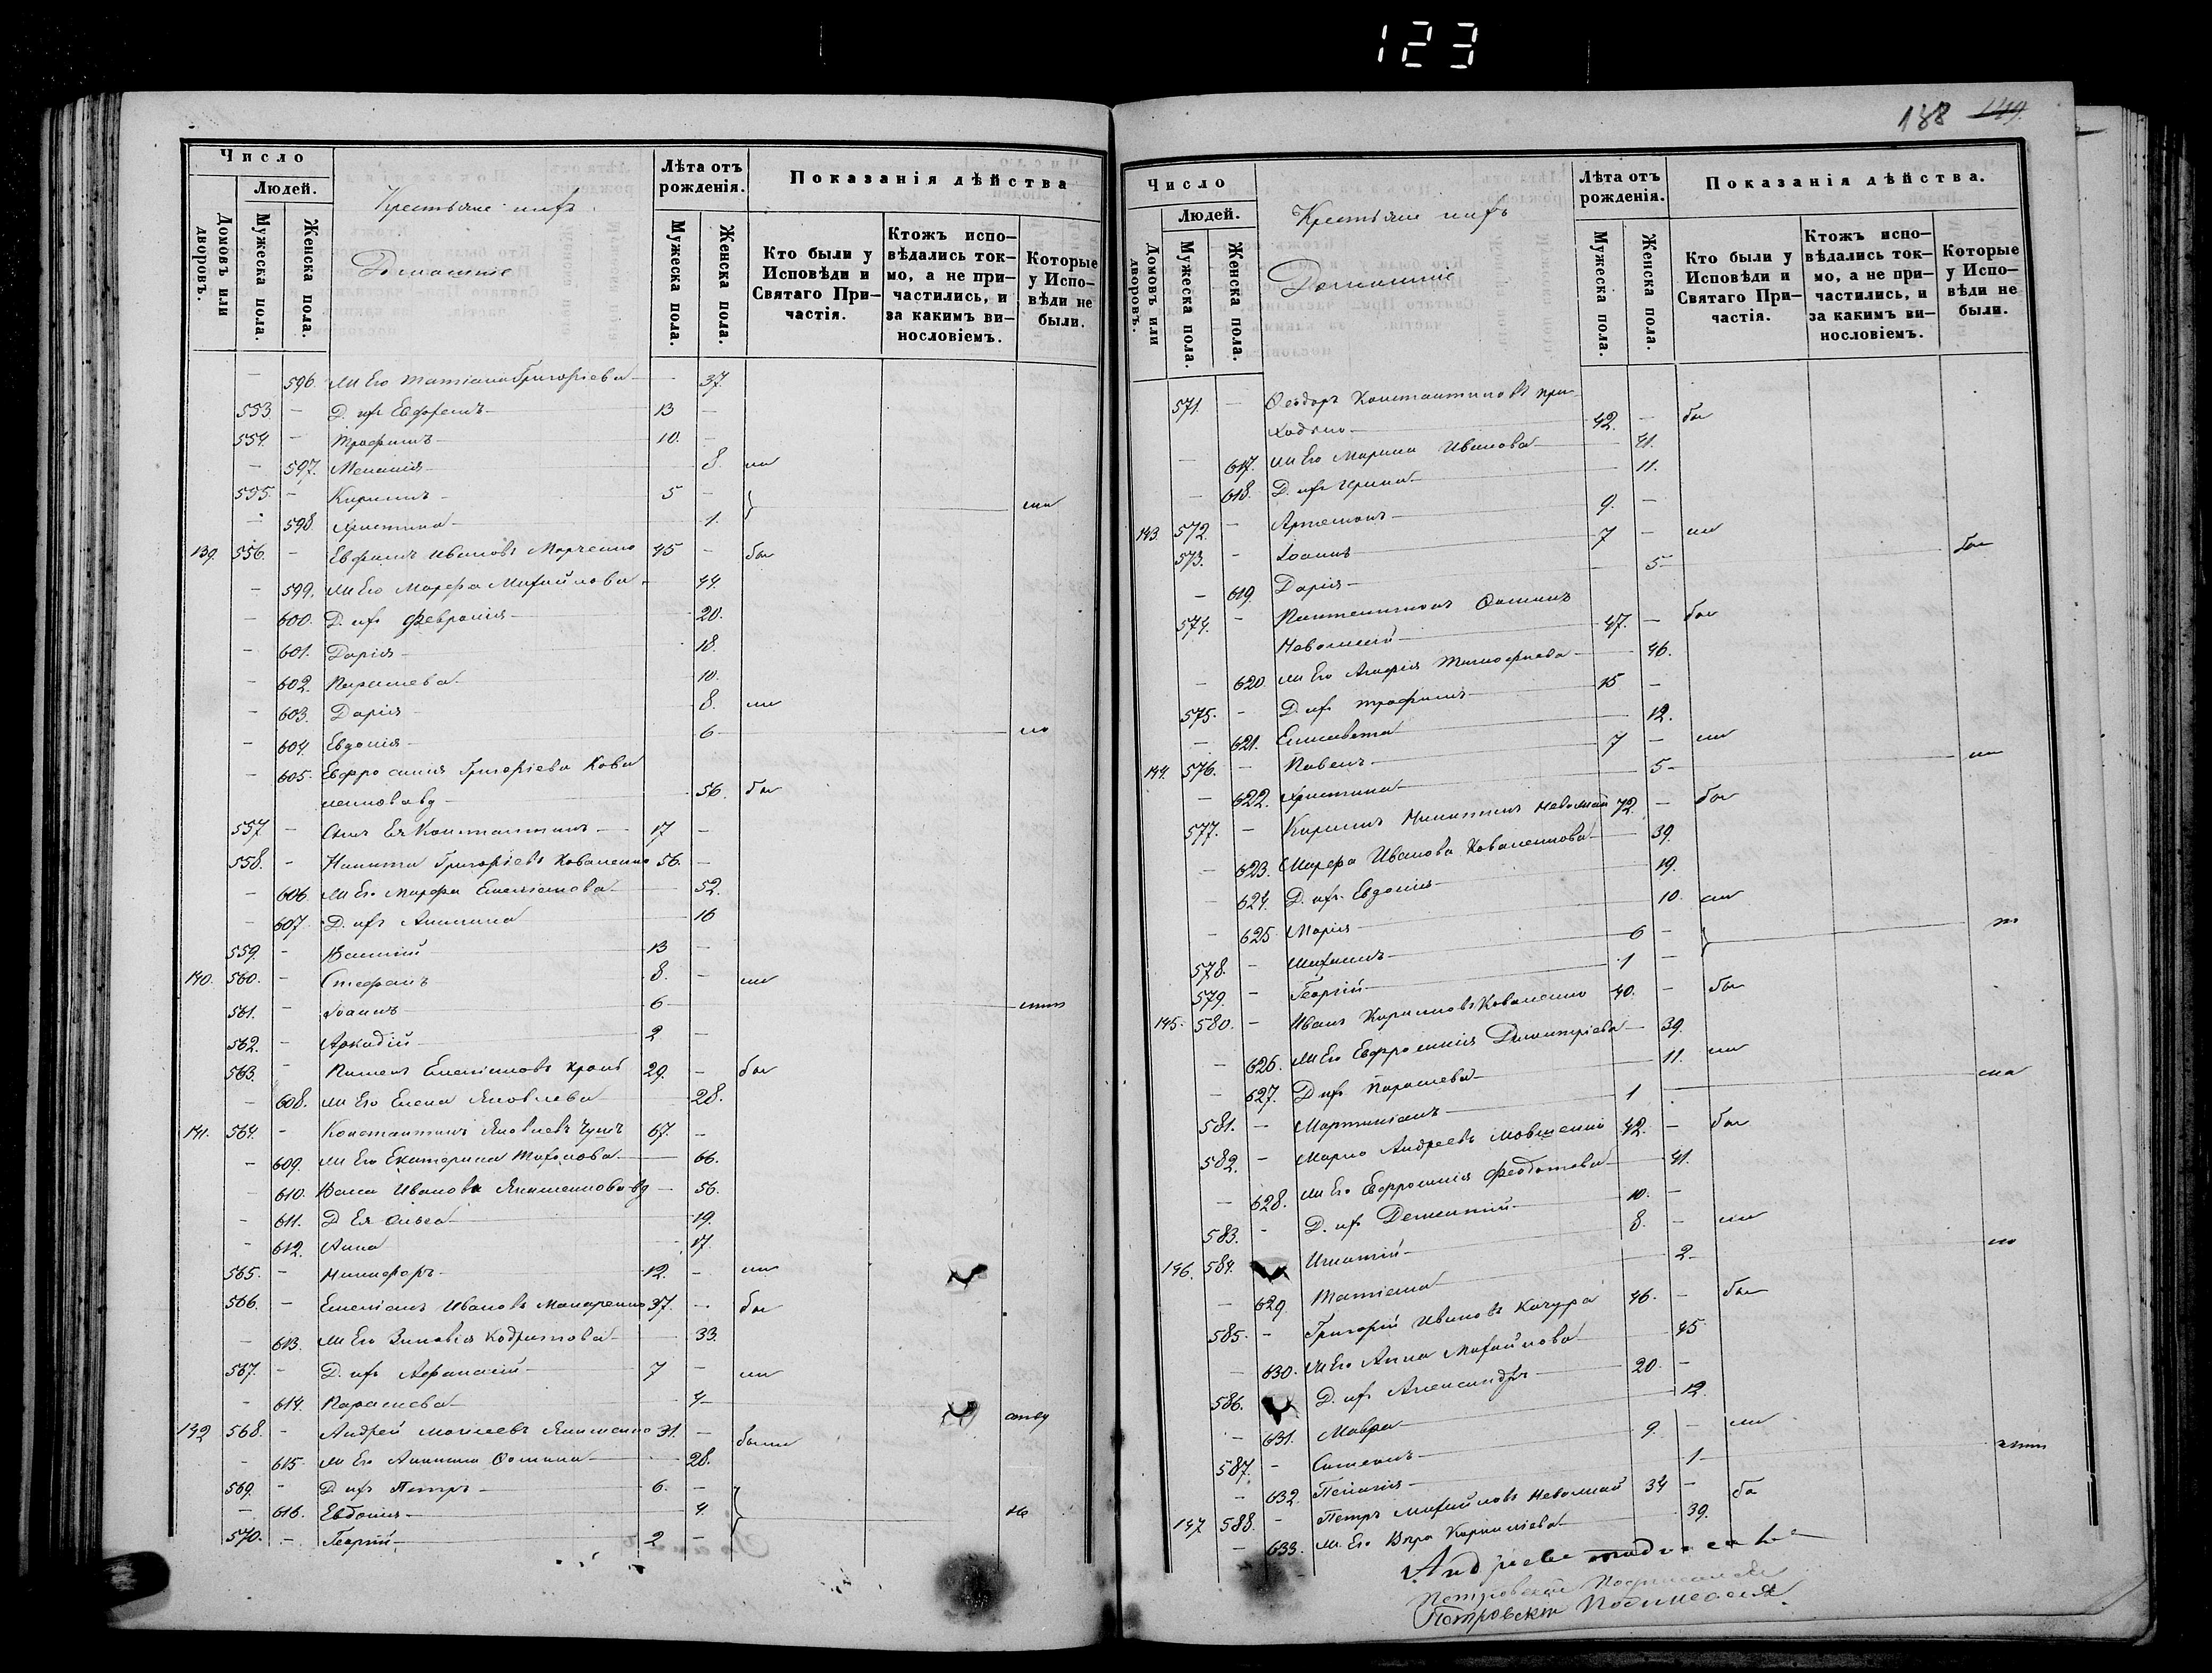 123
188 149.
Число
Людей.
Домовъ или дворовъ.
Мужеска пола.
Женска пола.
Крестьяне ихъ
Домашніе
Лѣта отъ рожденія.
Мужеска пола.
Женска пола.
Показанія дѣйства
Кто были у Исповѣди и Святаго При-частія.
Ктожъ испо-вѣдались ток-мо, а не при-частились, и за какимъ ви-нословіемъ.
Которые у Испо-вѣди не были.
— 596. Ж Его Татіана Григоріева — 37.
553 — Д. ихъ Евфремъ 13 —
554. — Трофимъ 10. —
— 597. Меланія 8.
555. — Кириллъ 5 —
— 598 Христина 1.
139. 556. — Евфимъ Ивановъ Марченко 45 — бы
— 599. Ж Его Марфа Михайлова 44.
— 600. Д. ихъ Февронія 20.
— 601. Дарія 18.
— 602. Параскева 10.
— 603. Дарія 8. ли
— 604. Евдокія 6
— 605. Евфросинія Григоріева Кова
ленкова вд 56. бы
557 — Сынъ Ея Константинъ 17 —
558. — Никита Григоріевъ Коваленко 56. —
— 606. Ж Его Марфа Емеліанова 52.
— 607. Д. ихъ Акилина 16
559. — Василій 13 —
140. 560. — Стефанъ 8. — ли
561. — Іоаннъ 6
562. — Аркадій 2 —
563. — Пименъ Емеліановъ 29. — бы
— 608. Ж Его Елена Яковлева 28.
141. 564. — Константинъ Яковлевъ 67. —
— 609. Ж Его Екатерина Тихонова 66.
— 610. Васса Иванова Якименкова вд — 56.
— 611. Д Ея Ольга 19.
— 612. Анна 17.
565. — Никифоръ 12. — ли
566. — Емеліанъ Ивановъ Макаренко 37. — бы
— 613. Ж Его Зиновія Кодратова 33.
567. — Д. ихъ Афанасій 7 — ли
— 614. Параскева 4
142 568. — Андрей Моисеевъ Якименко 31. — были
— 615. Ж Его Акилина Фомина 28.
569. — Д. ихъ Петръ 6. —
— 616. Евдокія 4.
570. — Георгій 2 —
Число
Людей.
Домовъ или дворовъ.
Мужеска пола
Женска пола.
Крестьяне ихъ
Домашніе
Лѣта отъ рожденія.
Мужеска пола.
Женска пола.
Показанія дѣйства.
Кто были у Исповѣди и Святаго При-частія.
Ктожъ испо-вѣдались ток-мо, а не при-частились, и за какимъ ви-нословіемъ.
Которые у Испо-вѣди не были.
571. — Ѳеодоръ Константиновъ При
ходько 42. — бы
— 617. Ж Его Марина Иванова 41.
— 618. Д. ихъ Ирина 11.
143 572. — Артемонъ 9. —
573. — Іоаннъ 7 — ли
— 619. Дарія 5
574. — Пантелимонъ Фоминъ
47. — бы
— 620. Ж Его Агафія Тимофіева 46.
575. — Д. ихъ Трофимъ 15 —
— 621. Елисавета 12.
144. 576. — Павелъ 7 — ли
— 622. Христина 5
577. — Кириллъ Никитинъ 72. — бы
— 623. Марфа Иванова Коваленкова 39.
— 624. Д. ихъ Евдокія 19.
— 625. Марія 10. ли
578. — Михаилъ 6 —
579. — Георгій 1 —
145. 580. — Иванъ Кирилловъ Коваленко 40. — бы
— 626. Ж Его Евфросинія Димитріева 39.
— 627. Д ихъ Параскева 11. ли
581. — Мартиніанъ 1
582. — Марко Андреевъ 42. — бы
— 628. Ж Его Евфросинія Феодотова 41.
583. — Д. ихъ Дементій 10. —
146. 584. Игнатій 8. — ли
— 629. Татіана 2
585. — Григорій Ивановъ Качура 46. — бы
— 630. Ж Его Анна Михайлова 45
586. Д. ихъ Александръ 20. —
— 631. Мавра 12.
587. — Симеонъ 9. — ли
— 632. Пелагія 1
147 588. — Петръ Михайловъ 34 — бы
— 633. Ж. Его Вѣра Кириллова 39.
Петровскій Подписался